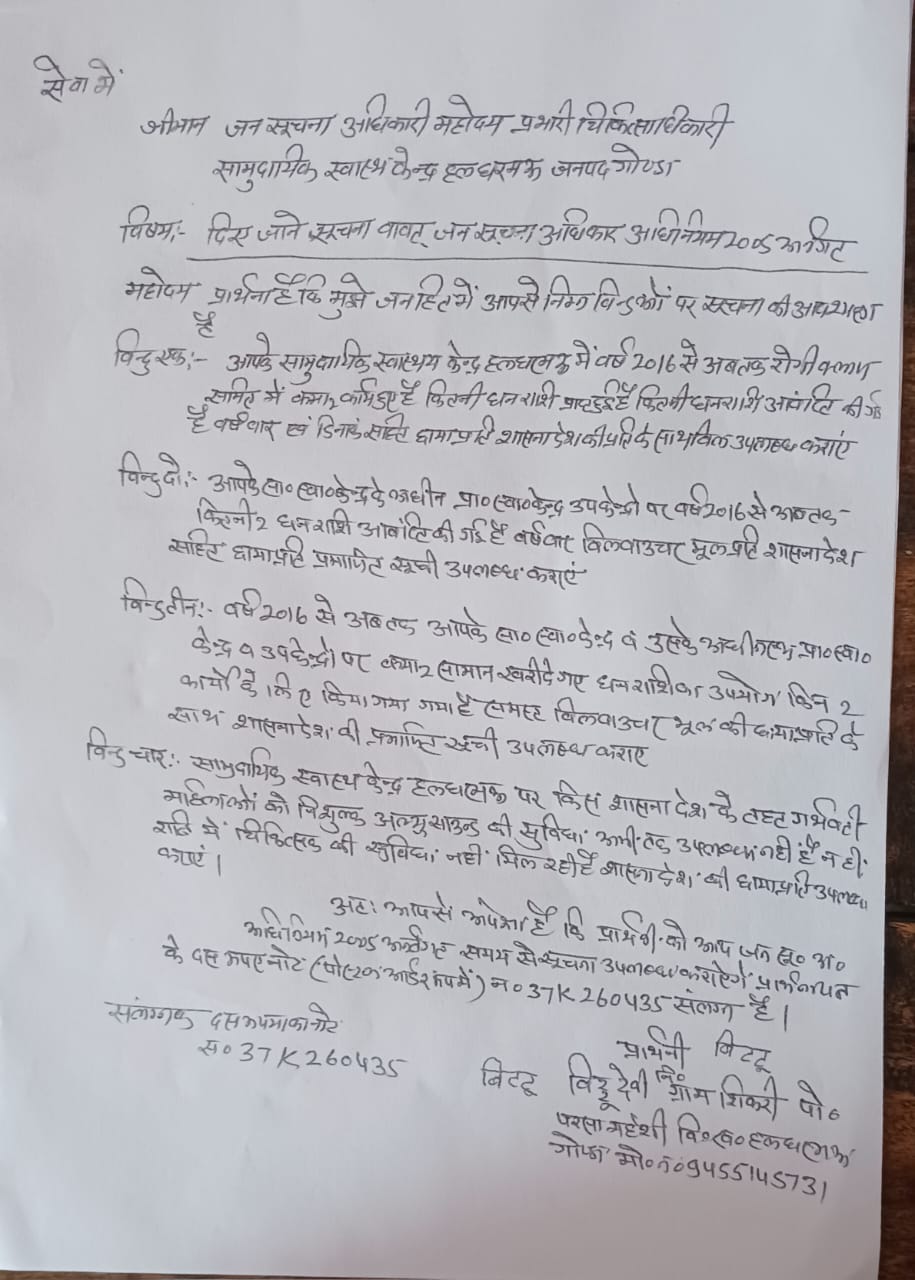 सेवा में
श्रीमान जन सूचना अधिकारी महोदय प्रभारी चिकित्साधिकारी
सामुदायिक स्वास्थ केन्द्र हलधरमऊ जनपद गोण्डा
विषय:- दिए जाने सूचना वावत् जन सूचना अधिकार अधिनियम 2005 अर्न्तगत
महोदय प्रार्थना है कि मुझे जनहित में आपसे निम्न विन्दुओं पर सूचना की आवश्यक्ता
है
विन्दु एक:- आपके सामुदायिक स्वास्थ्य केन्द्र हलधरमऊ में वर्ष 2016 से अबतक रोगी कल्याण
समिति में क्या2 कार्य हुए है कितनी धनराशी प्राप्त हुई है कितनी धनराशी आवंटित की गई
है वर्षवार एवं दिनांक सहित छायाप्रति शासनादेश की प्रति के साथ विल उपलब्ध कराएं
विन्दु दो:- आपके सा० स्वा० केन्द्र के अधीन प्रा० स्वा० केन्द्र उपकेन्द्रो पर वर्ष 2016 से अबतक
कितनी 2 धनराशी आबंटित की गई है वर्षवार विलवाउचर मूल प्रति शासनादेश
सहित छायाप्रति प्रमाणित सूची उपलब्ध कराएं
विन्दु तीन:- वर्ष 2016 से अबतक आपके सा० स्वा० केन्द्र व उसके अधीनस्थ प्रा० स्वा०
केन्द्र व उपकेन्द्रो पर क्या2 सामान खरीदे गए धनराशि का उपयोग किन 2
कार्यो के लिए किया गया गया है समस्त विलवाउचर मूल की छायाप्रति के
साथ शासनादेश की प्रमाणित सूची उपलब्ध कराए
विन्दु चार:- सामुदायिक स्वास्थ केन्द्र हलधरमऊ पर किस शासनादेश के तहत गर्भवती
महिलाओं को निशुल्क अल्ट्रासाउन्ड की सुविधा अभी तक उपलब्ध नही है न ही
रात्रि में चिकित्सक की सुविधा नही मिल रही है शासनादेश की छायाप्रति उपलब्ध
कराएं।
अत: आपसे अपेक्षा है कि प्रार्थिनी को आप जन सू० अ०
अधिनियम 2005 अर्न्तगत समय से सूचना उपलब्ध कराऐगें प्रार्थनापत्र
के दस रूपए नोट (पोस्टल आर्डर रूप में) न० 37K 260435 संलग्न है।
संलग्नक दस रूपया का नोट
स० 37K 260435
प्रार्थिनी बिटटू
बिटटू बिट्टू देवी नि० ग्राम शिकरी पो०
परसा महेशी वि० ख० हलधरमऊ
गोण्डा मो० न० 9455145731